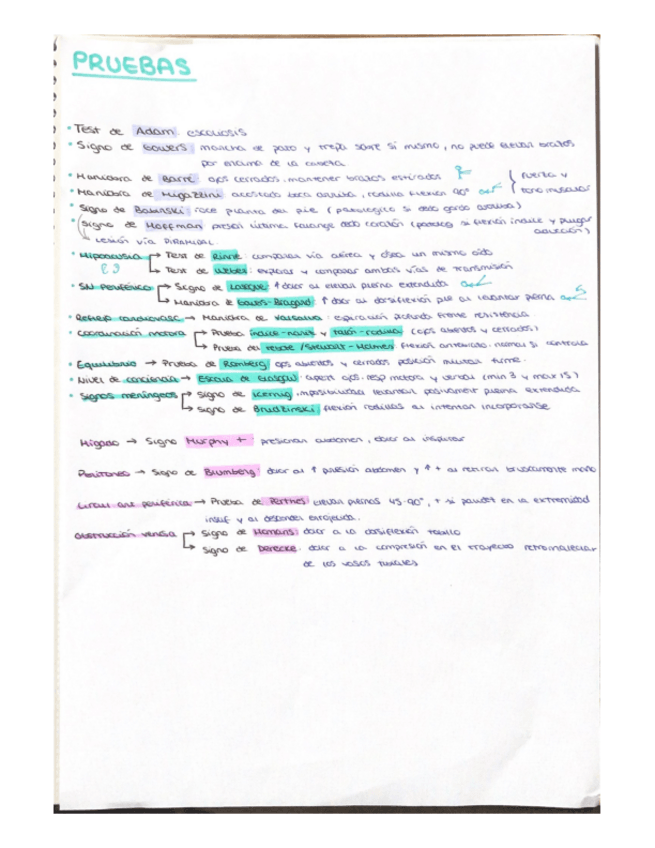 PRUEBAS
• Test de Adam: escoliosis
• Signo de Gowers: marcha de pato y trepa sobre si mismo, no puede elevar brazos
por encima de la cabeza
• Maniobra de Barré ojos cerrados, mantener brazos estirados } fuerza y
• Maniobra de Migazzini acostado boca arriba, rodilla flexión 90° } tono muscular
• Signo de Babinski roce planta del pie (patologico si dedo gordo arriba)
• Signo de Hoffman presión última falange dedo corazón (patológ si flexión indice y pulgar
aducción)
↳ Lesión vía piramidal.
• Hipoacusia → Test de Rinne comparar vía aérea y ósea un mismo oido
→ Test de Weber: explorar y comparar ambas vías de transmisión
• SN Periférico → Signo de Lasegue: ↑ dolor al elevar pierna extendida
→ Maniobra de Gowers-Bragard ↑ dolor al dorsiflexión pie al levantar pierna
• Reflejo cardiovasc → Maniobra de Valsalva: espiración profunda frente resistencia
• Coordinación motora → Prueba indice-nariz y talón-rodilla (ojos abiertos y cerrados)
→ Prueba del rebote /Stewart-Holmes flexión antebrazo. normal si controla
• Equilibrio → Prueba de Romberg ojos abiertos y cerrados posición militar firme.
• Nivel de conciencia → Escala de Glasgow: apert ojos, resp motora y verbal (min 3 y max 15)
• Signos meníngeos → Signo de Kernig: imposibilidad levantar pasivament pierna extendida
→ Signo de Brudzinski: flexión rodillas al intentar incorporarse
Higado → Signo Murphy + presionar abdomen, dolor al inspirar
Peritoneo → Signo de Blumberg: dolor al ↑ presión abdomen y ↑ + al retirar bruscamente mano
Circul art periférica → Prueba de Perthes elevar piernas 45-90°, + si palidez en la extremidad
insuf y al descender enrojecida.
Obstrucción venosa → Signo de Homans: dolor a la dorsiflexión tobillo
→ Signo de Derecke: dolor a la compresión en el trayecto retromaleolar
de los vasos tibiales